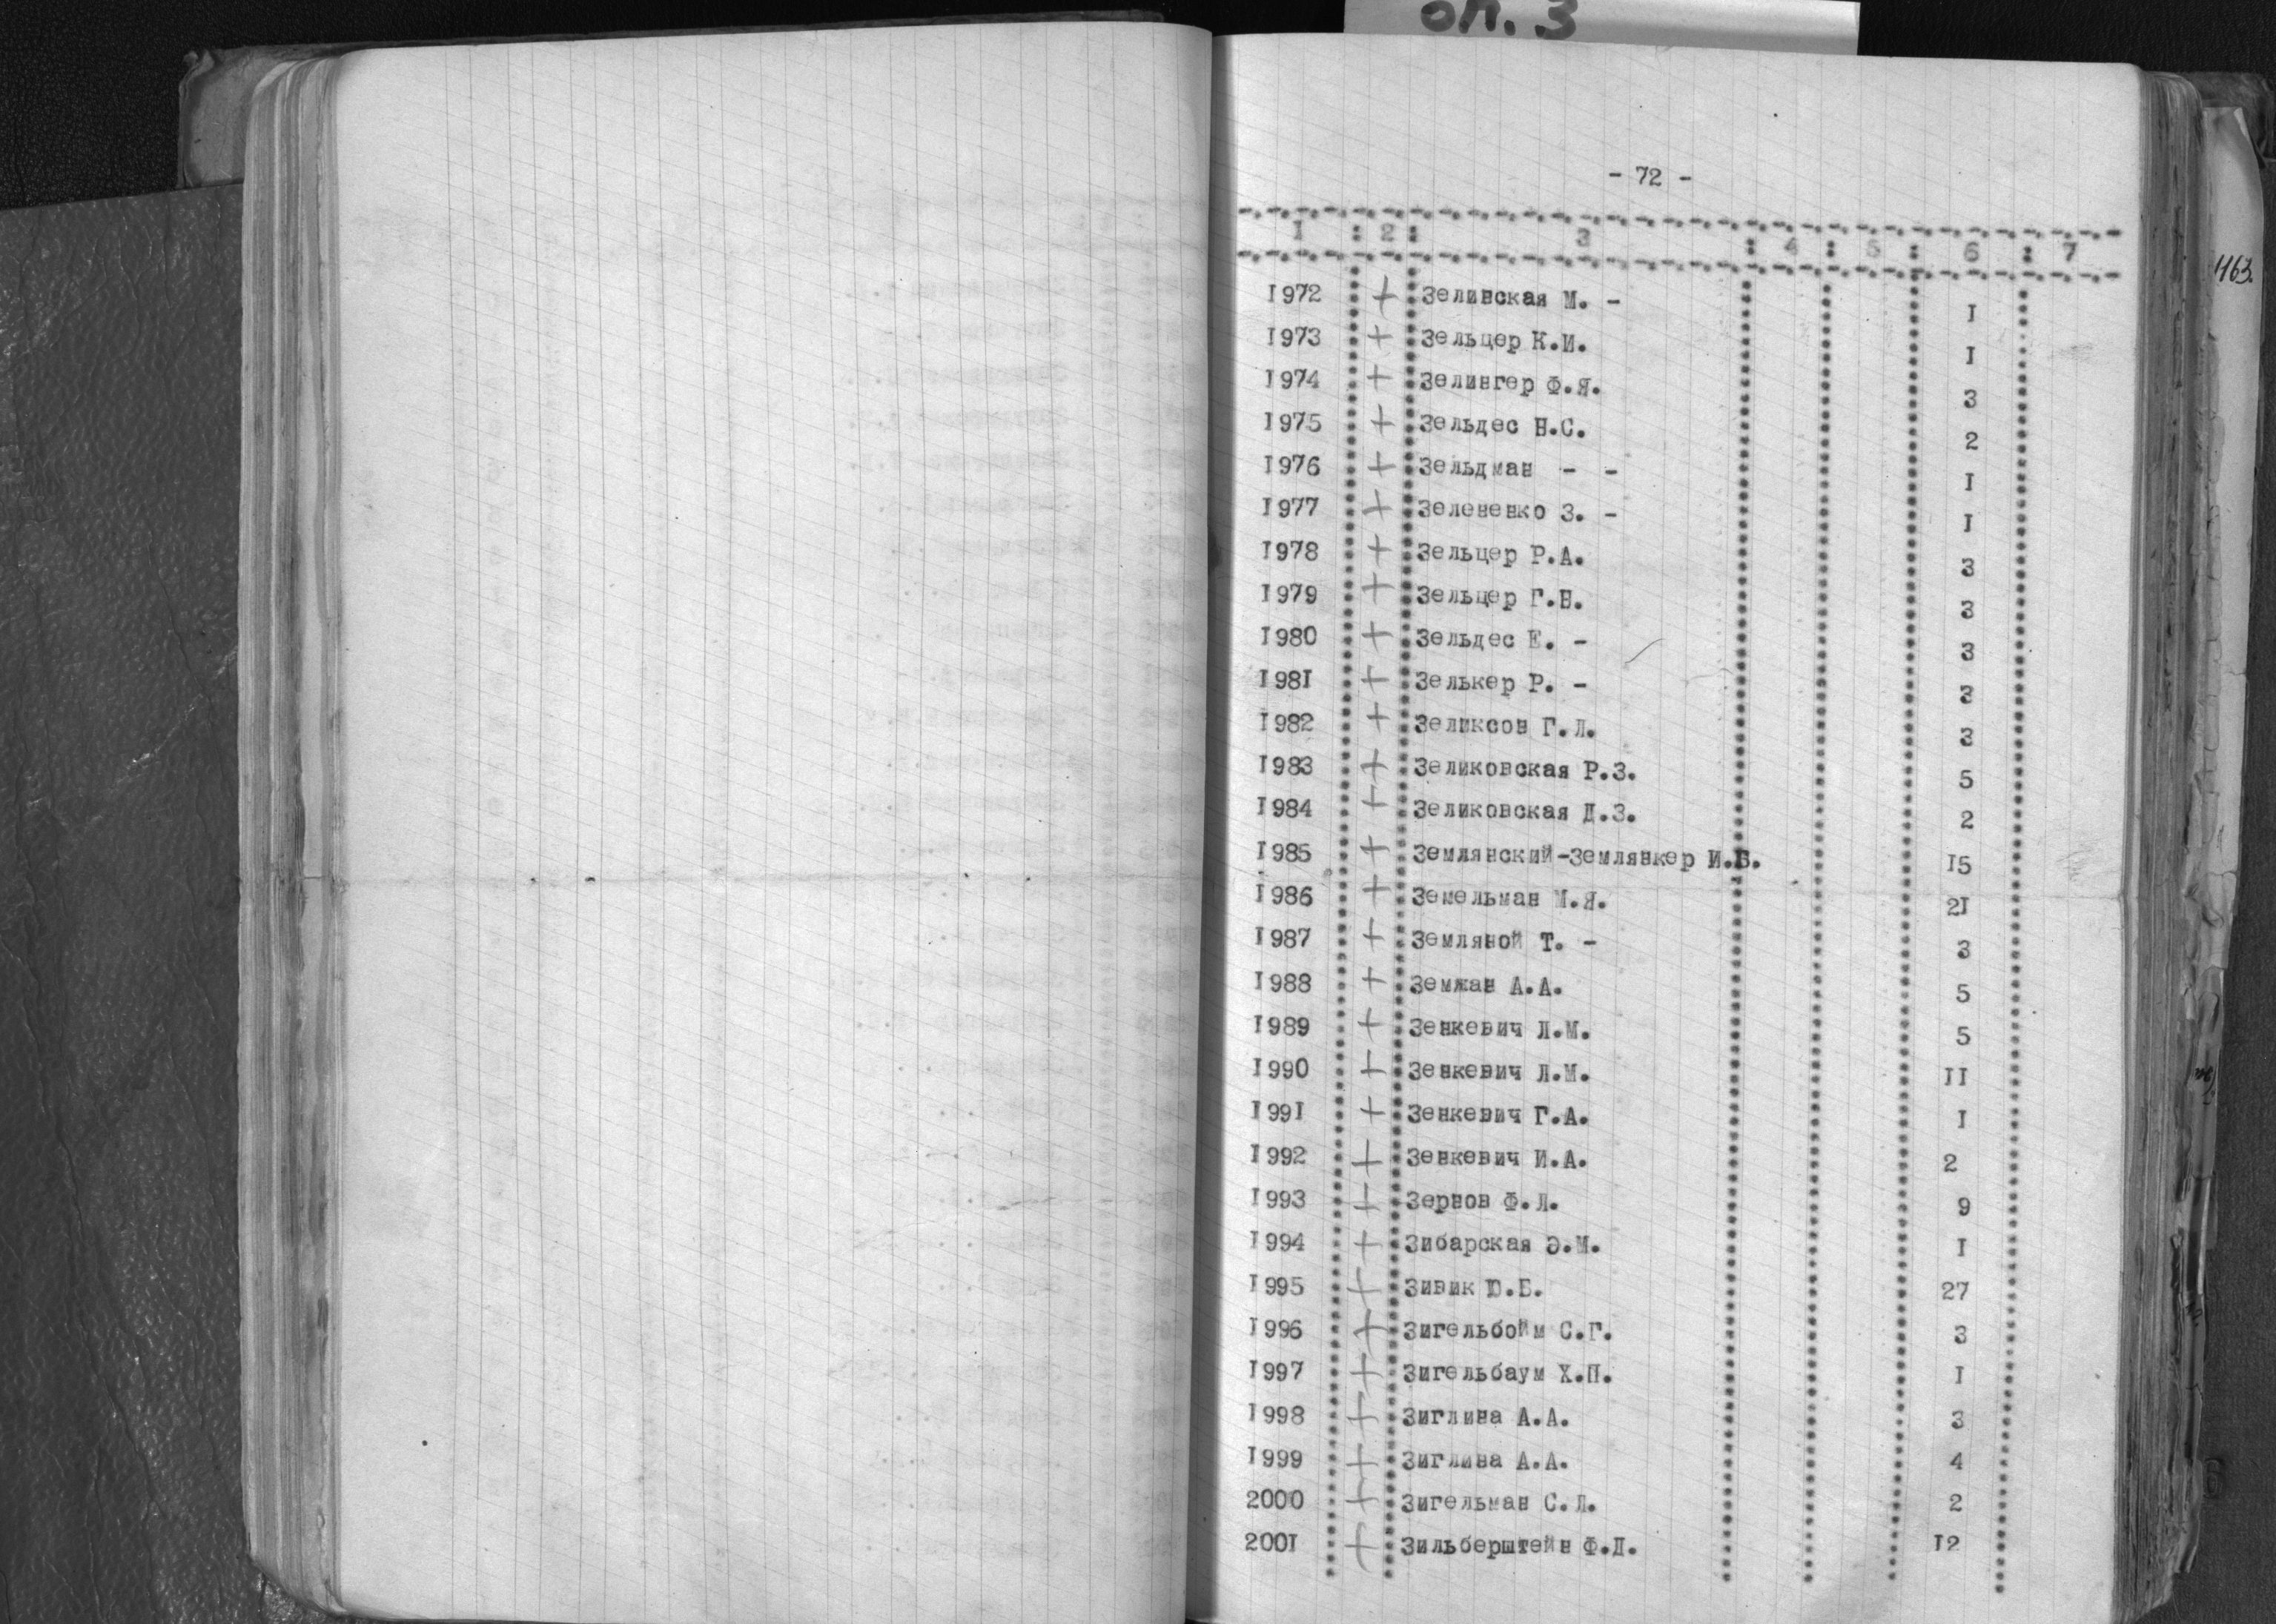 оп. 3
- 72 -
1 : 2 : 3 : 4 : 5 : 6 : 7
1972 + Зелинская М. - 1
1973 + Зельцер К.И. 1
1974 + Зелингер Ф.Я. 3
1975 + Зельдес Н.С. 2
1976 + Зельдман - - 1
1977 + Зелененко З. - 1
1978 + Зельцер Р.А. 3
1979 + Зельцер Г.Н. 3
1980 + Зельдес Е. - 3
1981 + Зелькер Р. - 3
1982 + Зеликсон Г.Л. 3
1983 + Зеликовская Р.З. 5
1984 + Зеликовская Д.З. 2
1985 + Землянский-Землянкер И.Б. 15
1986 + Земельман М.Я. 21
1987 + Земляной Т. - 3
1988 + Земжан А.А. 5
1989 + Зенкевич Л.М. 5
1990 + Зенкевич Л.М. 11
1991 + Зенкевич Г.А. 1
1992 + Зенкевич И.А. 2
1993 + Зернов Ф.Л. 9
1994 + Зибарская Э.М. 1
1995 + Зивик Ю.Б. 27
1996 + Зигельбойм С.Г. 3
1997 + Зигельбаум Х.П. 1
1998 + Зиглина А.А. 3
1999 + Зиглина А.А. 4
2000 + Зигельман С.Л. 2
2001 + Зильберштейн Ф.Д. 12
1163.